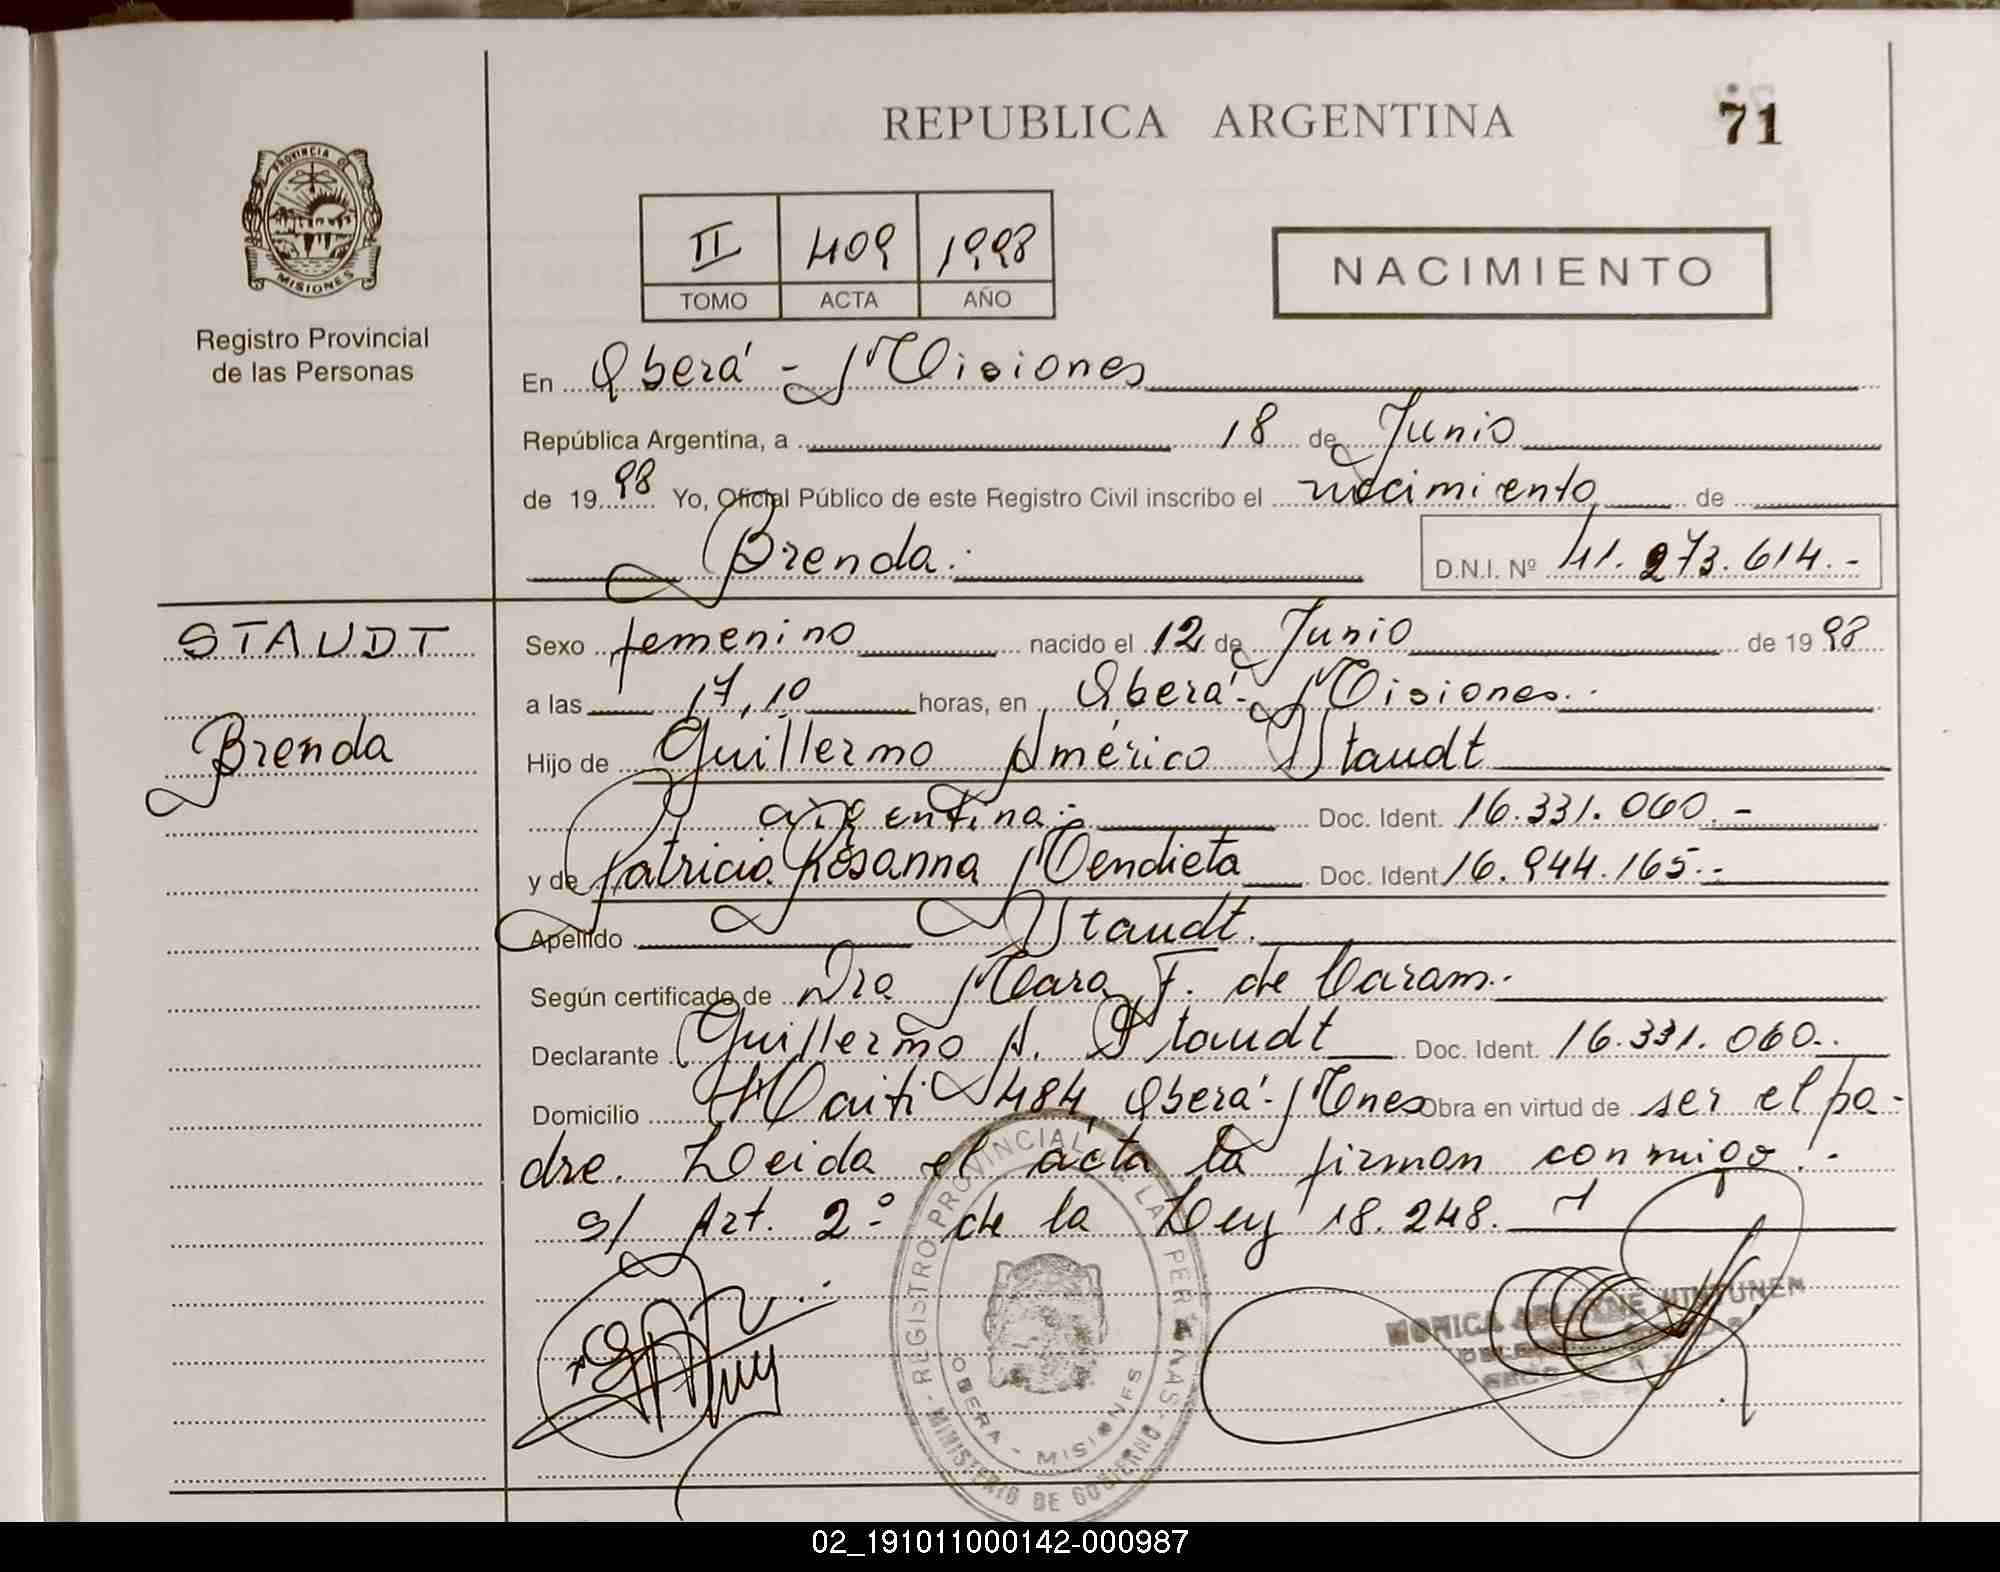 REPUBLICA ARGENTINA
71
PROVINCIA DE
MISIONES
Registro Provincial
de las Personas
II 409 1998
TOMO ACTA AÑO
NACIMIENTO
En Oberá - Misiones
República Argentina, a 18 de Junio
de 1998 Yo, Oficial Público de este Registro Civil inscribo el nacimiento de
Brenda.
D.N.I. Nº 41.273.614.-
STAUDT
Brenda
Sexo femenino nacido el 12 de Junio de 1998
a las 17,10 horas, en Oberá - Misiones.
Hijo de Guillermo Américo Staudt
argentina.- Doc. Ident. 16.331.060.-
y de Patricia Rosanna Mendieta Doc. Ident. 16.944.165.-
Apellido Staudt.
Según certificado de Dra Mara F. de Caram.
Declarante Guillermo A. Staudt Doc. Ident. 16.331.060..
Domicilio Haiti 484, Oberá - Mnes Obra en virtud de ser el pa-
dre. Leida el acta la firman conmigo.-
s/ Art. 2º de la Ley 18.248.
REGISTRO PROVINCIAL DE LAS PERSONAS
OBERA - MISIONES
MINISTERIO DE GOBIERNO
MONICA
02_191011000142-000987